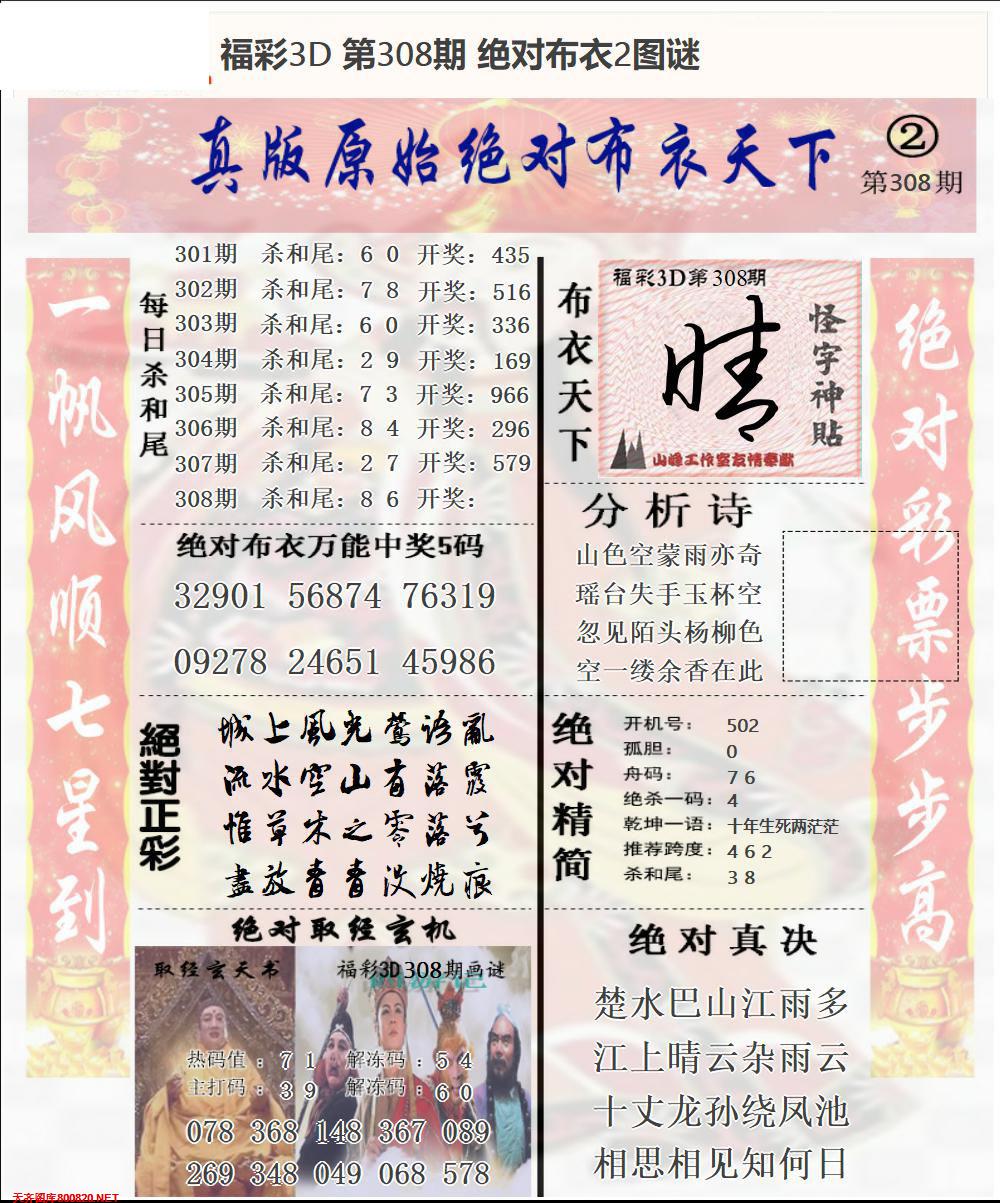 福彩3D 第308期 绝对布衣2图谜
真版原始绝对布衣天下
②
第308期
一帆风顺七星到
每日杀和尾
301期 杀和尾：6 0 开奖：435
302期 杀和尾：7 8 开奖：516
303期 杀和尾：6 0 开奖：336
304期 杀和尾：2 9 开奖：169
305期 杀和尾：7 3 开奖：966
306期 杀和尾：8 4 开奖：296
307期 杀和尾：2 7 开奖：579
308期 杀和尾：8 6 开奖：
绝对布衣万能中奖5码
32901 56874 76319
09278 24651 45986
絕對正彩
城上風光鶯语亂
流水空山有落霞
惟草木之零落兮
盡放青青没燒痕
绝对取经玄机
取经玄天书
福彩3D308期画谜
热码值：7 1 解冻码：5 4
主打码：3 9 解冻码：6 0
078 368 148 367 089
269 348 049 068 578
布衣天下
福彩3D第308期
晴
怪字神貼
山峰工作室友情奉献
分析诗
山色空蒙雨亦奇
瑶台失手玉杯空
忽见陌头杨柳色
空一缕余香在此
绝对精简
开机号：502
孤胆：0
舟码：7 6
绝杀一码：4
乾坤一语：十年生死两茫茫
推荐跨度：4 6 2
杀和尾：3 8
绝对真决
楚水巴山江雨多
江上晴云杂雨云
十丈龙孙绕凤池
相思相见知何日
绝对彩票步步高
天齐图库800820.NET